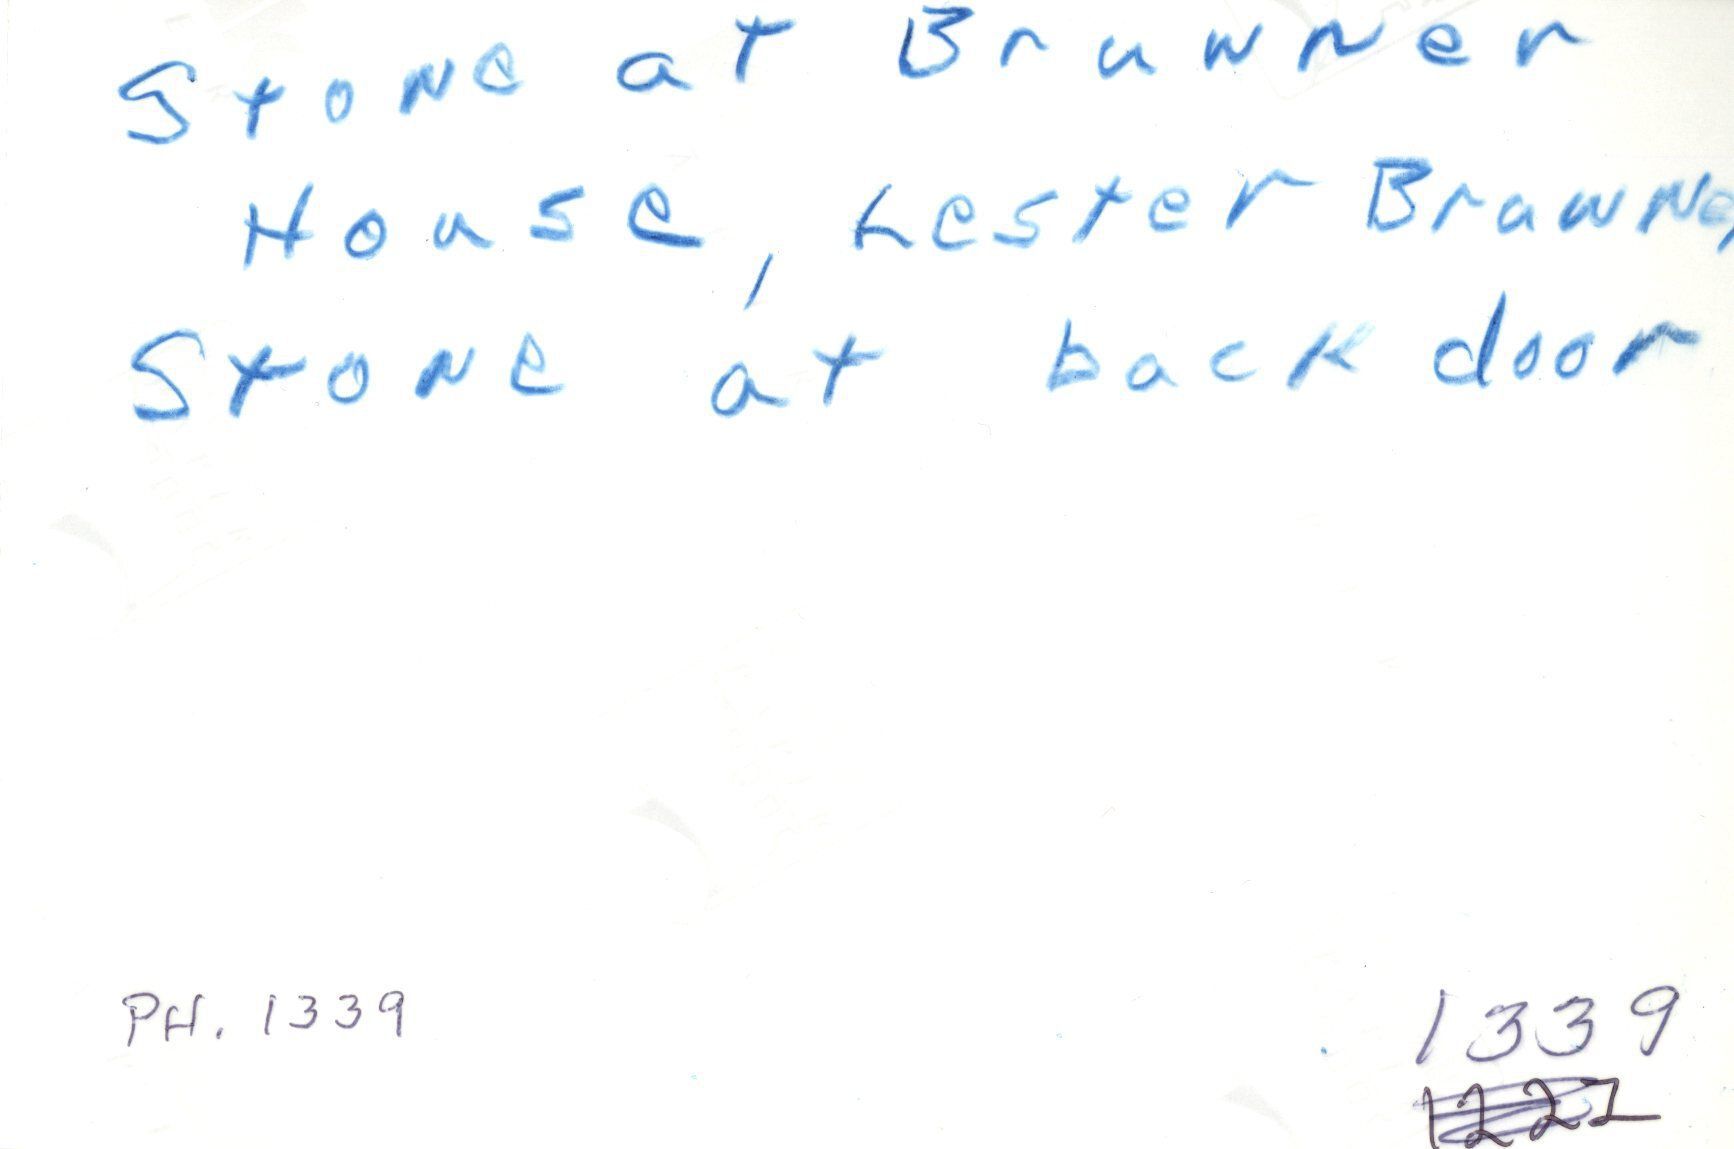 Stone at Brawner
House, Lester Brawner
Stone at back door
PH. 1339
1339
1222